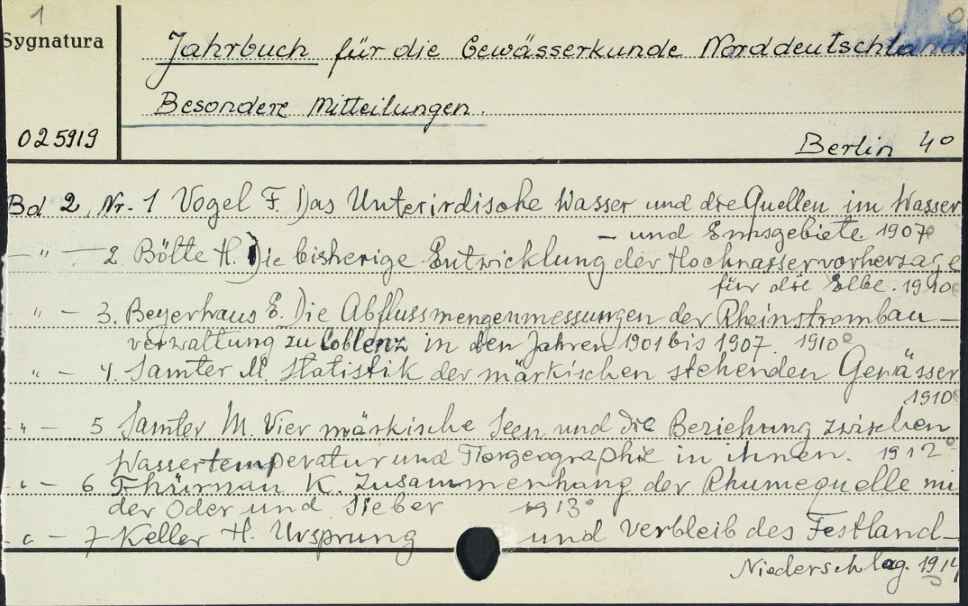 1
Sygnatura
Jahrbuch für die Gewässerkunde Norddeutschlands
Besondere Mitteilungen.
025919
Berlin 4°
Bd 2, Nr. 1 Vogel F. Das Unterirdische Wasser und die Quellen im Wasser
- und Emsgebiete 1907°
- " - 2 Bölte H. Die bisherige Entwicklung der Hochwasservorhersage
für die Elbe. 1910°
" - 3. Beyerhaus E. Die Abflussmengenmessungen der Rheinstrombau -
verwaltung zu Coblenz in den Jahren 1901 bis 1907. 1910°
" - 4. Samter M. Statistik der märkischen stehenden Gewässer
1910°
- " - 5 Samter M. Vier märkische Seen und die Beziehung zwischen
Wassertemperatur und Tiergeographie in ihnen. 1912°
- " - 6 Thürnau K. Zusammenhang der Rhumequelle mit
der Oder und Sieber 1913°
- " - 7 Keller H. Ursprung und Verbleib des Festland-
Niederschlag. 1914